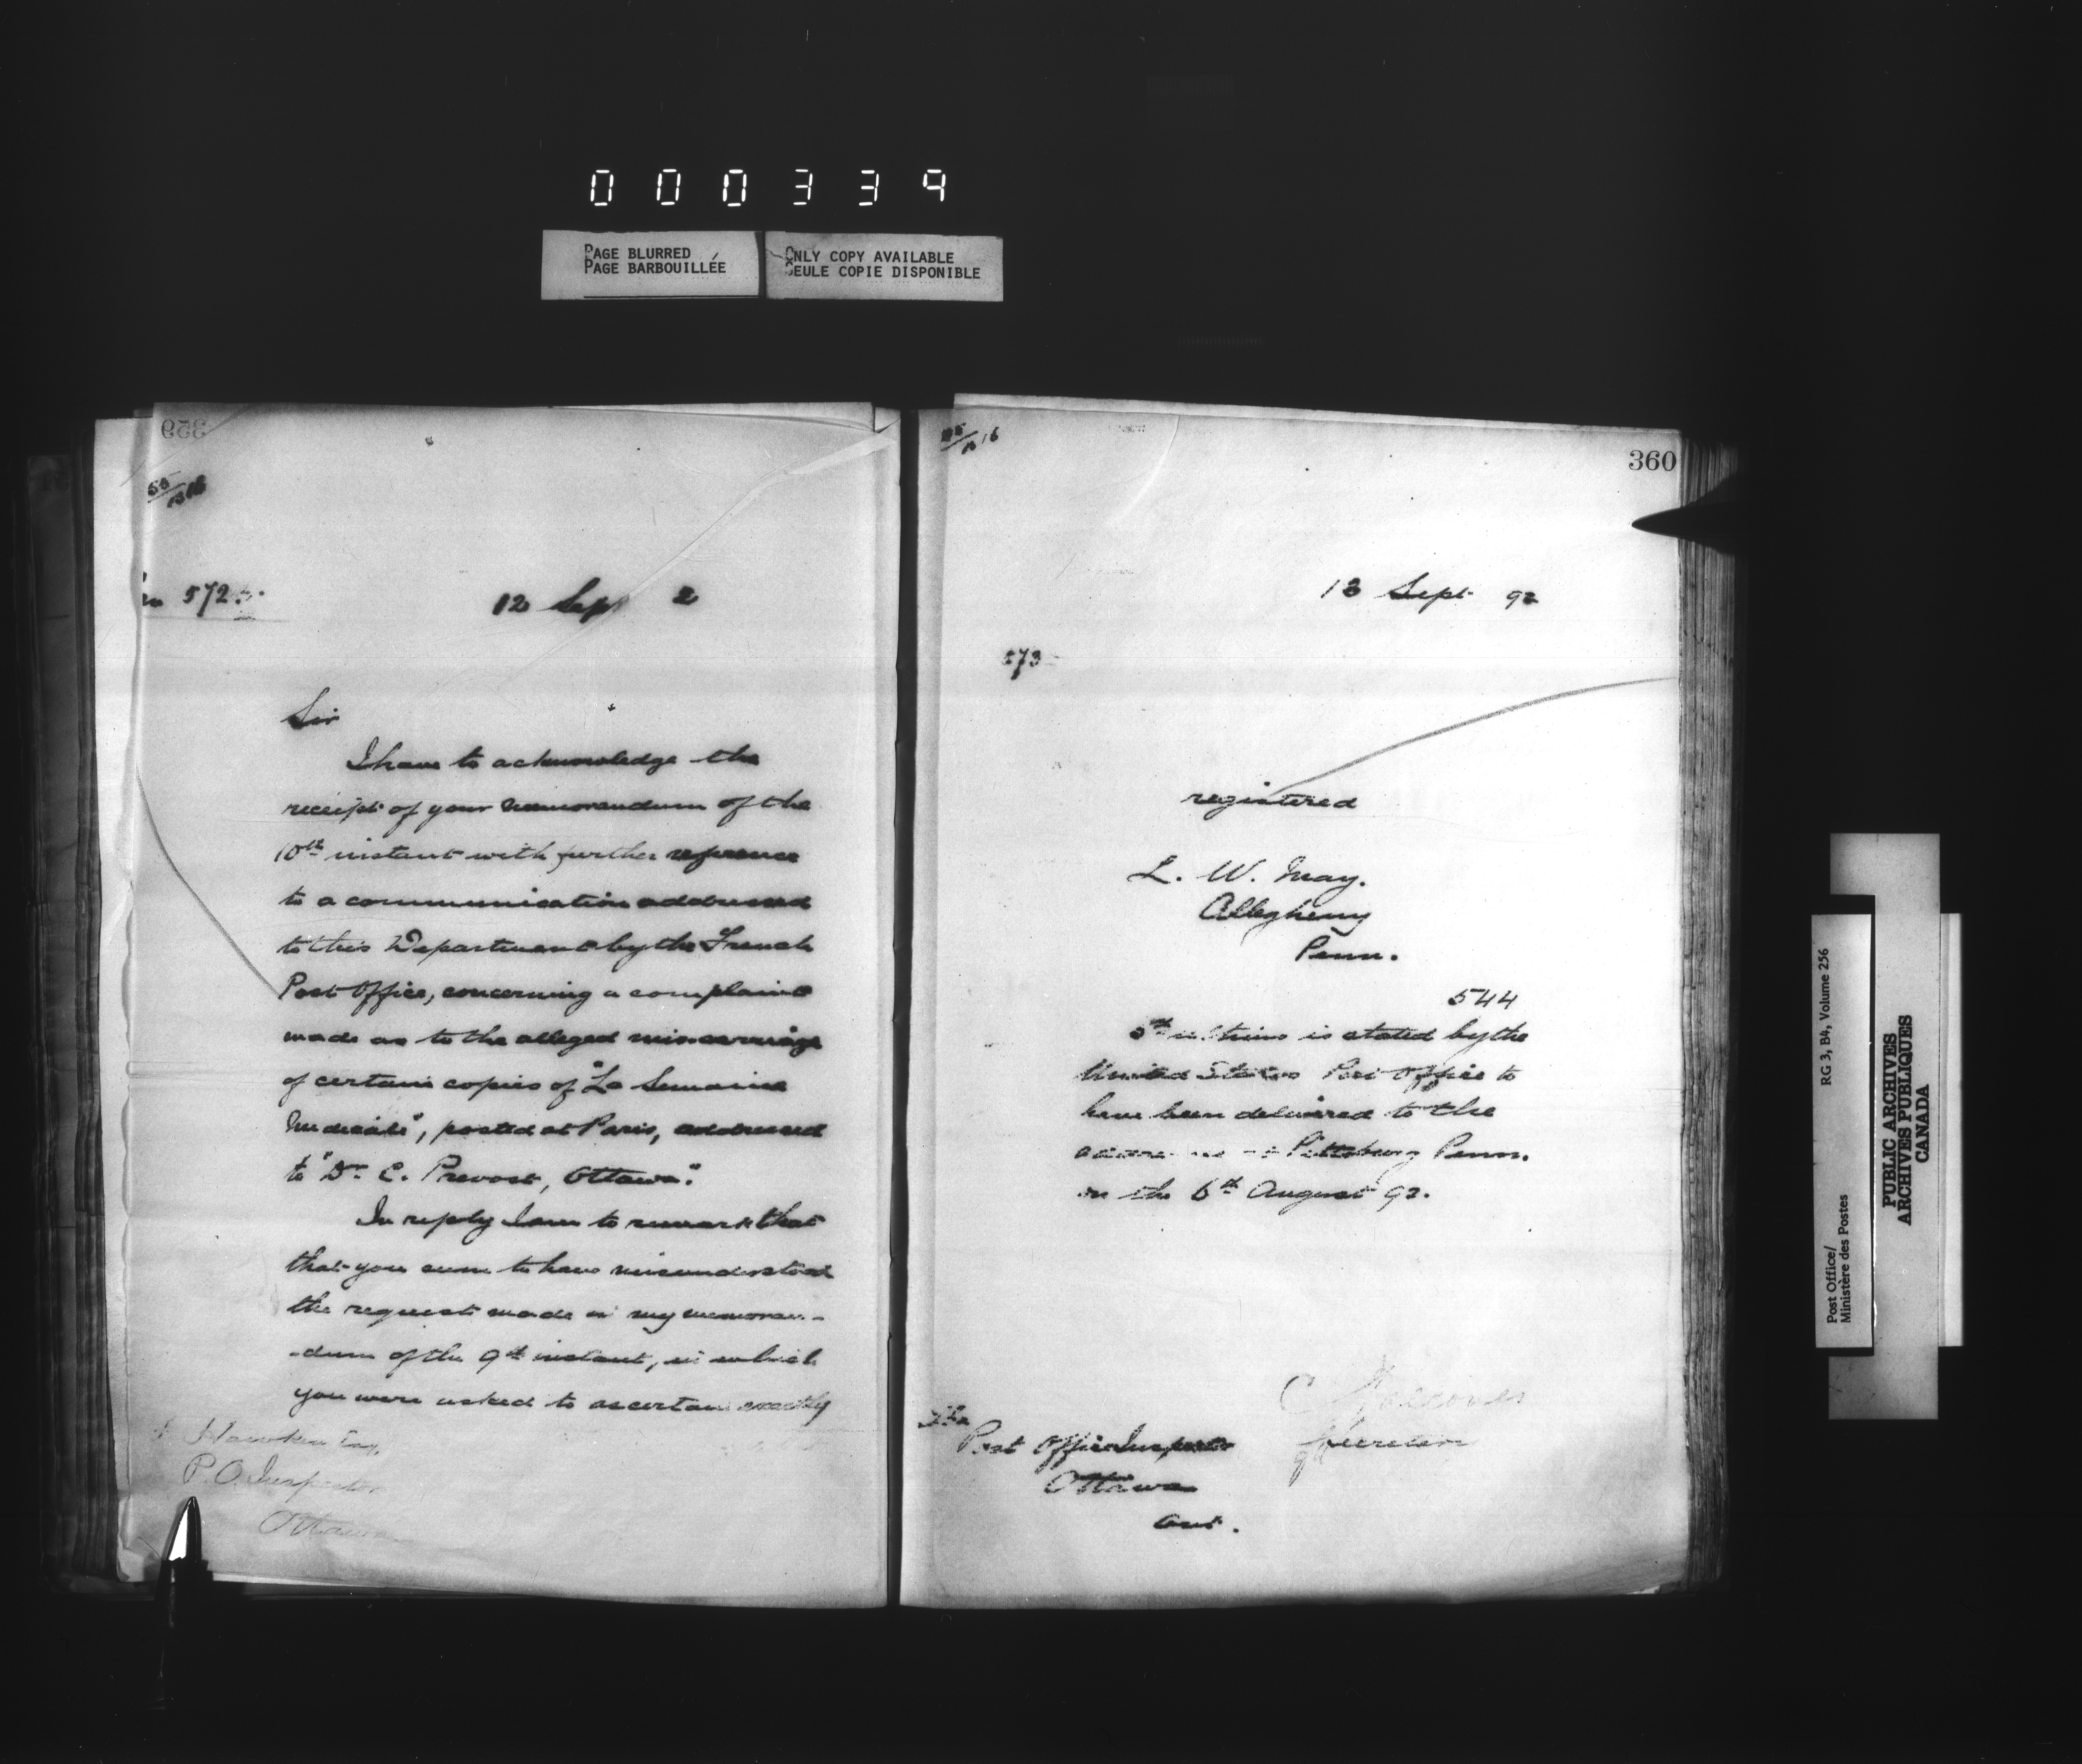 000339
PAGE BLURRED
PAGE BARBOUILLÉE
ONLY COPY AVAILABLE
SEULE COPIE DISPONIBLE
572
12 Sept 2
Sir
I have to acknowledge the
receipt of your memorandum of the
10th instant with further reference
to a communication addressed
to this Department by the French
Post Office, concerning a complaint
made as to the alleged miscarriage
of certain copies of "La Semaine
Médicale", posted at Paris, addressed
to "Dr. C. Prevost, Ottawa."
In reply I am to remark that
that you seem to have misunderstood
the request made in my memoran-
-dum of the 9th instant, in which
you were asked to ascertain exactly
Hawken Esq.
P.O. Inspector
Ottawa
360
13 Sept 92
573
registered
L. W. May.
Allegheny
Penn.
544
is stated by the
United States Post Office to
have been delivered to the
Pittsburg Penn.
on the 6th August 92.
Secretary
The
Post Office Inspector
Ottawa
Ont.
Post Office/
Ministère des Postes
RG 3, B4, Volume 256
PUBLIC ARCHIVES
ARCHIVES PUBLIQUES
CANADA